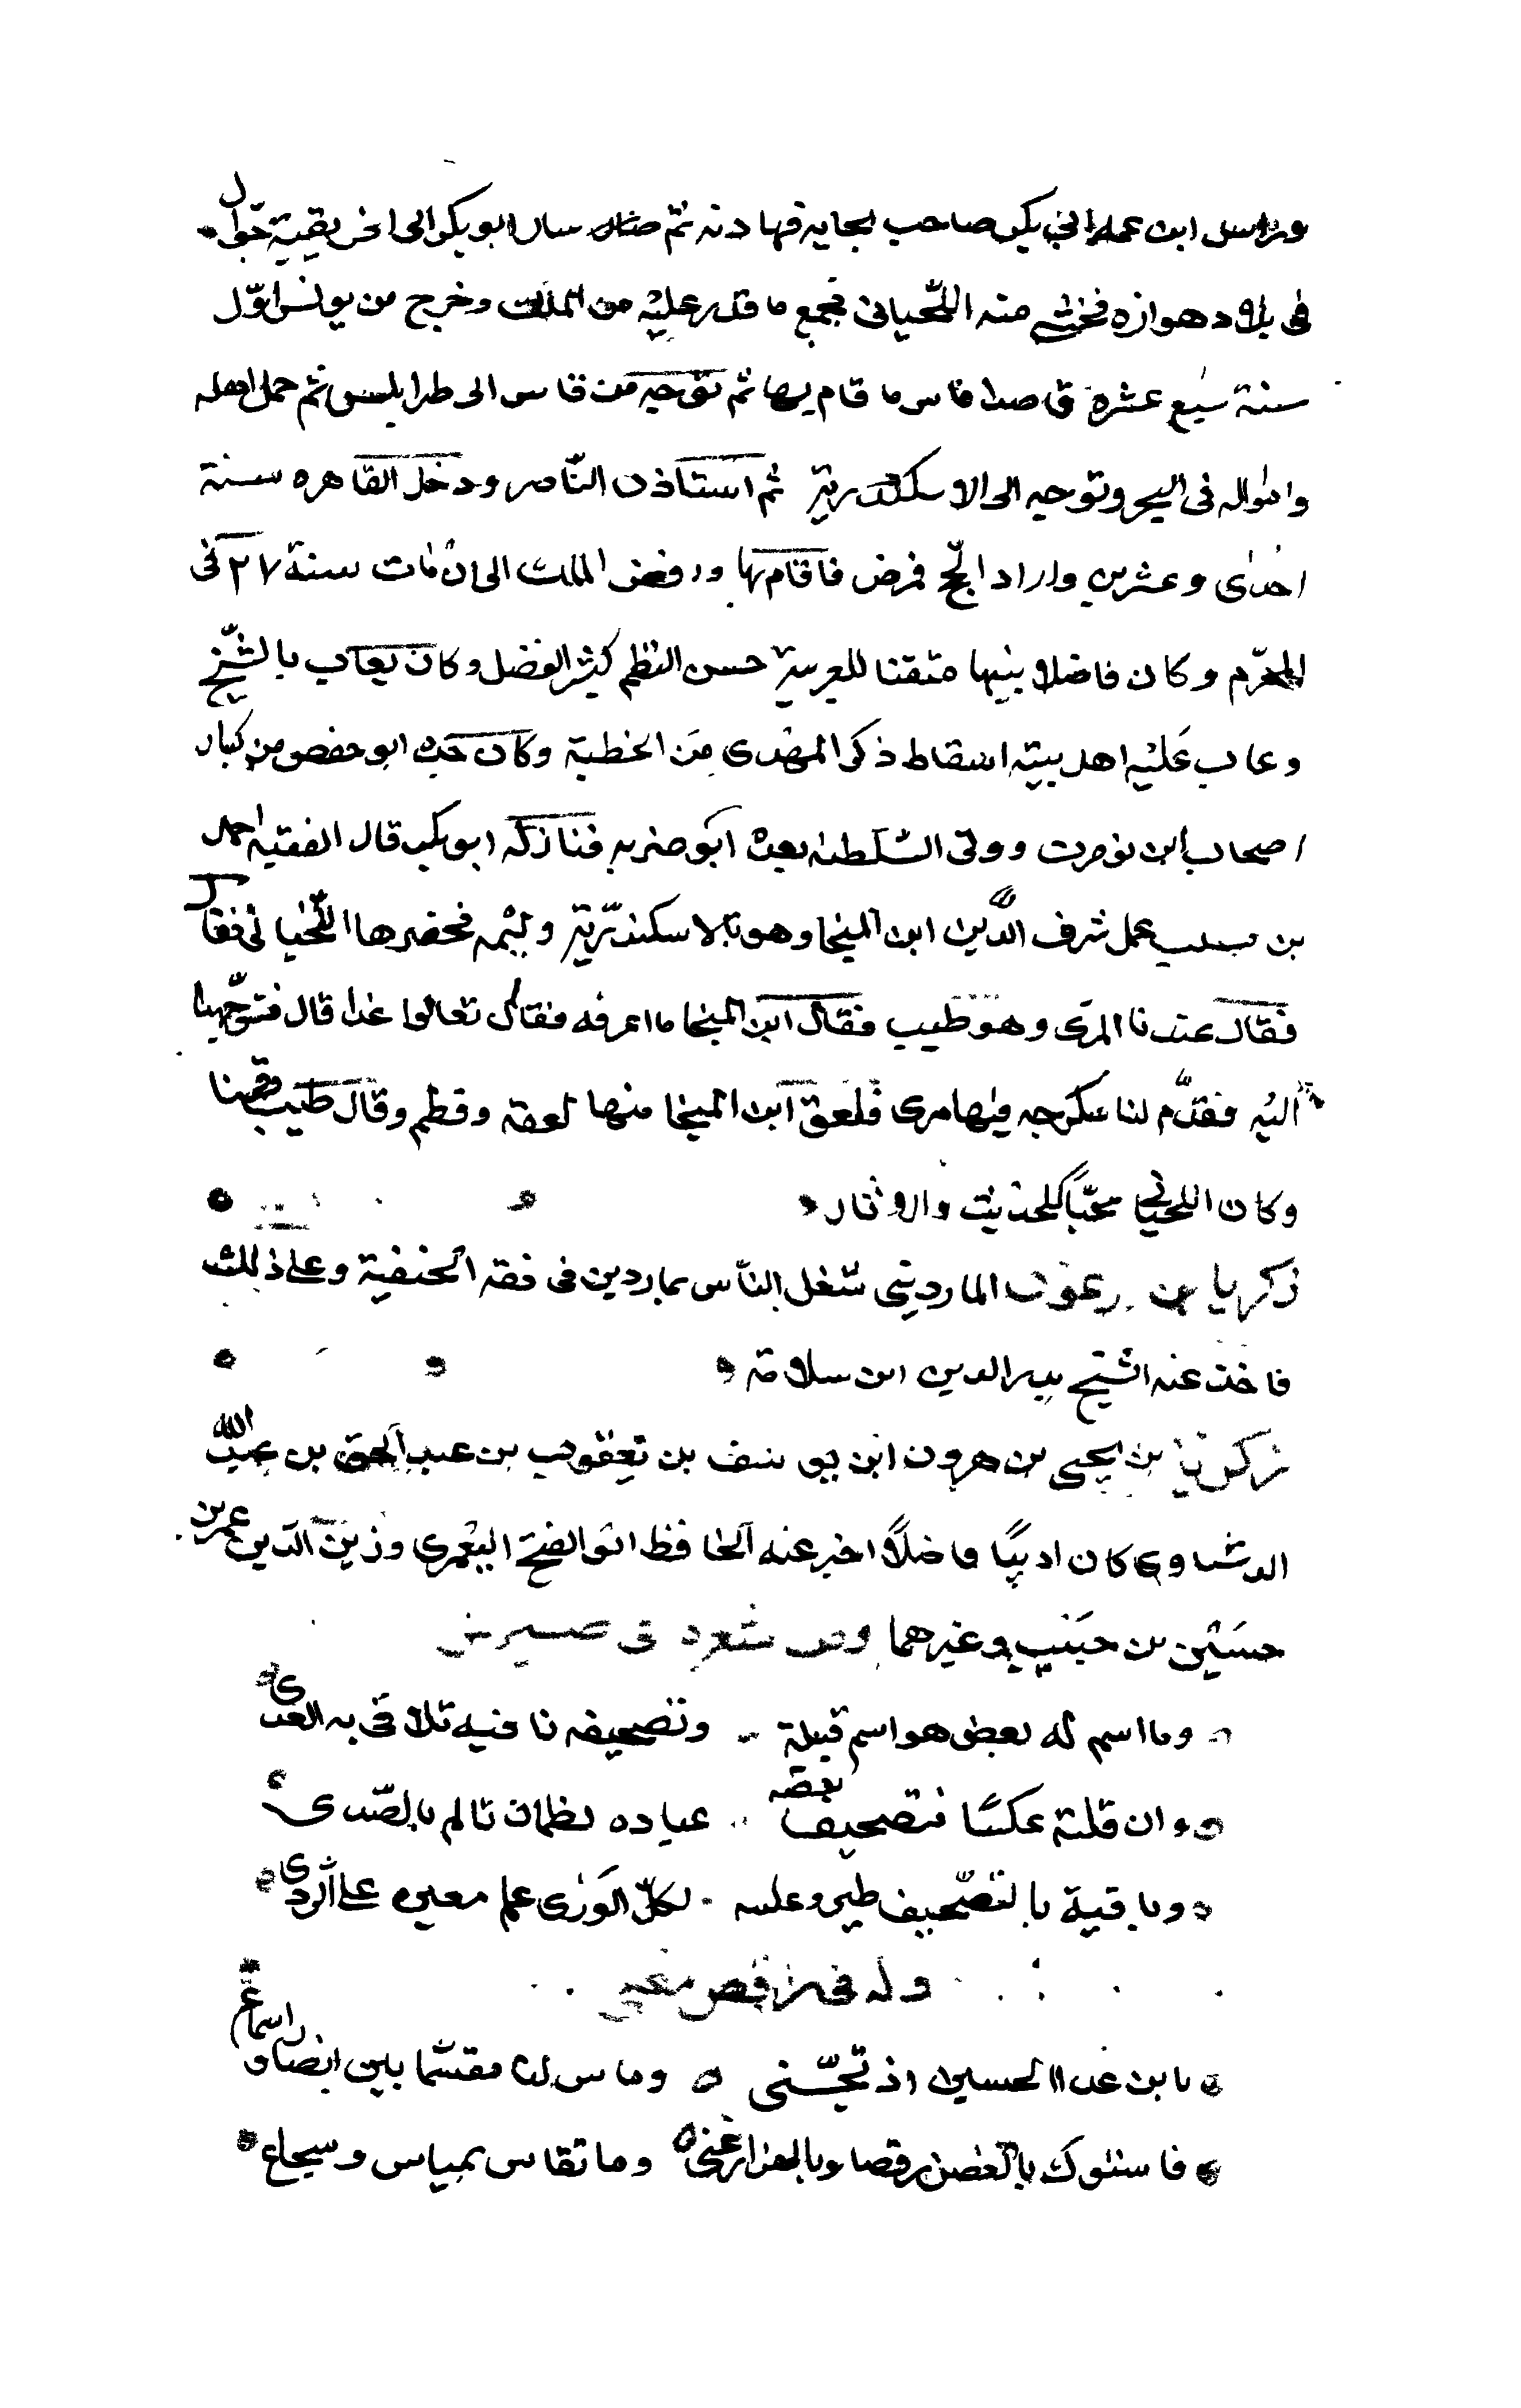 وراسل ابن عمه ابي بكر صاحب بجايه فهادنه ثم سار ابو بكر الى افريقية تجول
في بلاد هوازه فخشى منه اللحياني فجمع ما قدر عليه من وخرج من يونس اوّل
سنة سبع عشره قاصدا فاس ما قام بها ثم توجه من قاس الى طرابلس ثم حمل اهله
وامواله فى البحر وتوجه الى الاسكندرية ثم استاذن النّاصر ودخل القاهره سنة
احدى وعشرين واراد الحّج فمرض فاقام بها ورفض الملك الى ان مات سنة ٢٧ فى
المحرّم وكان فاضلا بنيها متقنا للعربية حسن النظم كثير الفضل وكان يعاب بالشّيخ
وعاب عليه اهل بيته اسقاط ذكر المهدى من الخطبة وكان جده ابو حفص من كبار
اصحاب ابن تومرت وولى السلطنه بعده ابو ضربه فنازله ابو بكر قال الفقيه احمد
بن عمل شرف الدّين ابن المنجا وهو بالاسكندريّة وليمه فحضرها اللّحيانى فقال
فقال عندنا المرى وهو طيب فقال ابن المنجا ما اعرفه فقال تعالوا غدا قال فتوجّهنا
اليه فقدّم لنا سكرجه فيها مرى فلعق ابن المنجا منها لعقة وقطم وقال طيب وقمنا
وكان اللحياني محبّاً للحديث والاثار
زكريا بن المارديني شغل النّاس بماردين فى فقه الحنفية وعلى ذلك
فاخذ عنه الشيخ بدر الدين ابن سلامة
زكريا بن يحيى بن هرون ابن يوسف بن يعقوب بن عبد الحق بن عبد الله
الدشناوى كان اديبًا فاضلاً اخبر عنه الحافظ ابو الفتح اليعمرى وزين الدّين عمر بن
حسين بن حبيب وغيرهما ومن شعره فى
وما اسم له بعض هو اسم قبيلة وتصحيفه نافيه تلاقى به العدى
وان قلته عكسًا فتصحيف بعضه عباده لظمان تالم بالصّدى
وباقية بالتصّحيف طير وعكسه لكلّ الورى علم معين على الردى
وله فى راقص مغنى
يا بن الحسين اذ تحبّسنى وما مقسّما بين ابصار واسماع
بالغصن رقصا وبالهزار غنى وما تقاس بمياس وسجاع